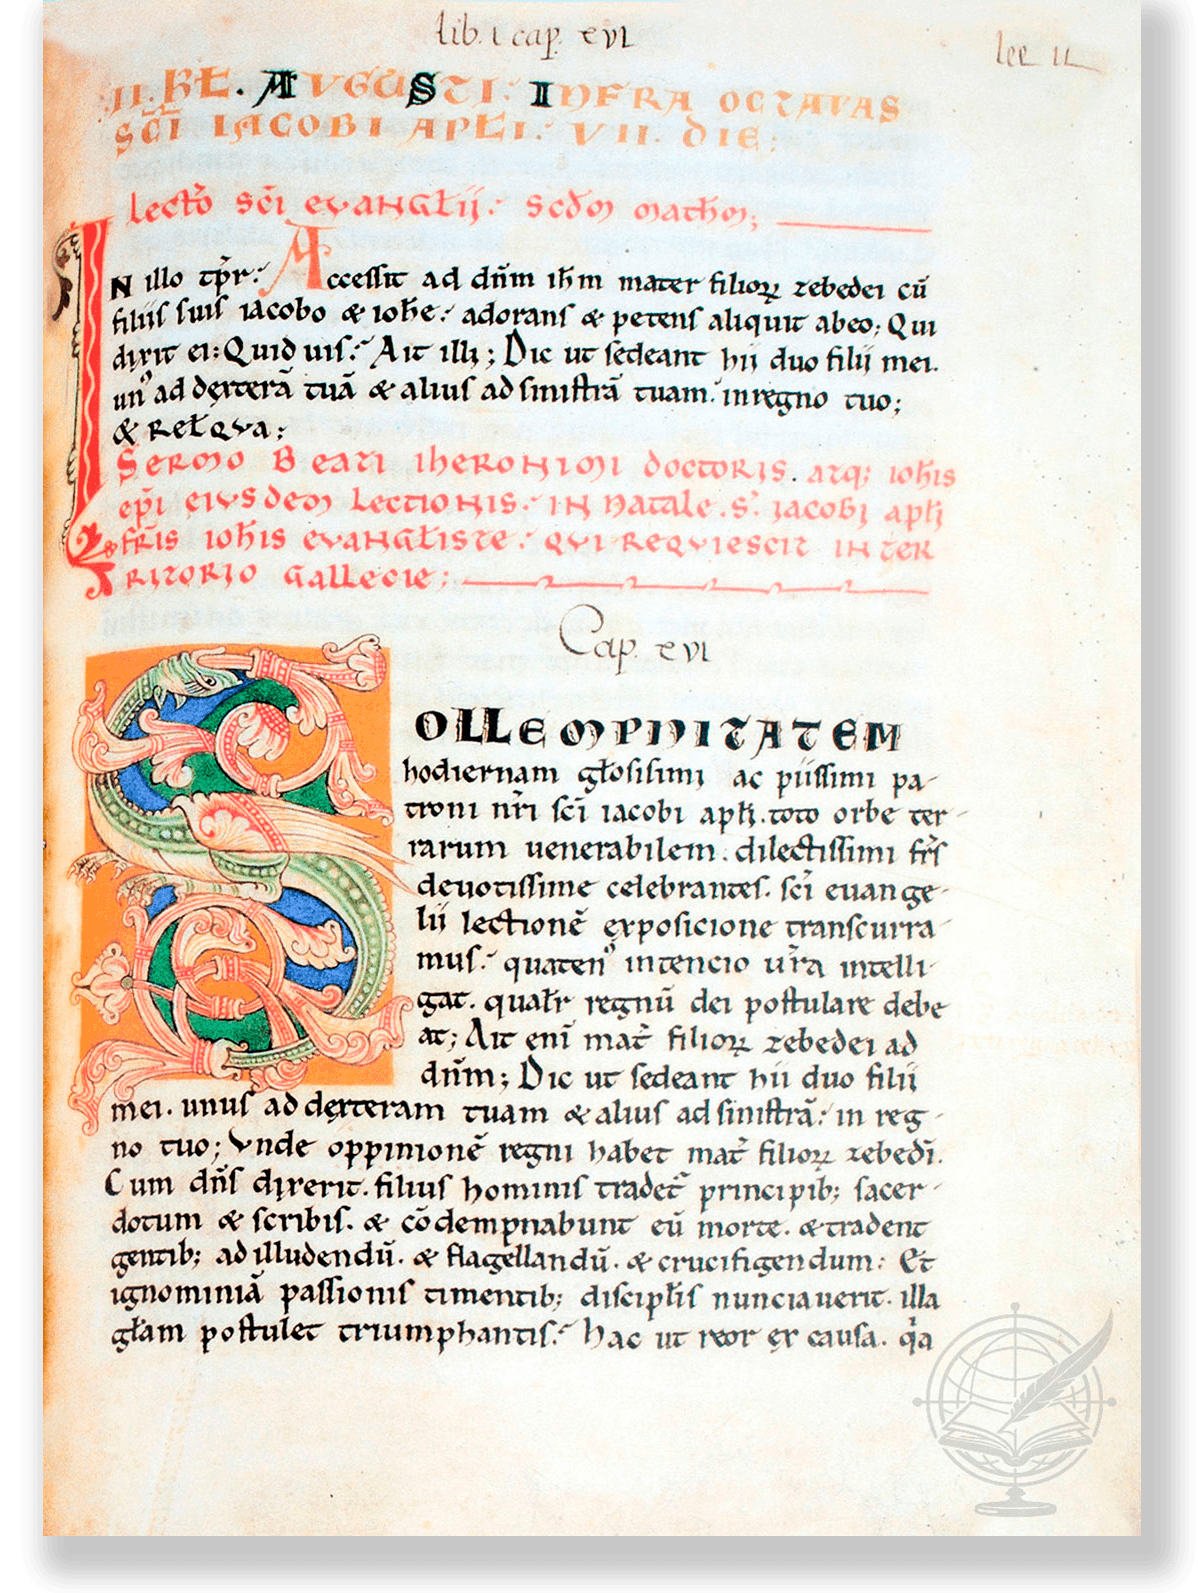 lib. i cap. xvi
lec ii
II. KL. AVGUSTI. INFRA OCTAVAS
SCĪ IACOBI APLI. VII. DIE:
Lectio scī evangłij. Scdm mathm;
IN illo tpr. Accessit ad dnm ihm mater filioꝝ zebedei cū
filiis suis iacobo & iohe. adorans & petens aliquit abeo; Qui
dixit ei: Quid uis. Ait illi; Dic ut sedeant hii duo filii mei.
un᾿ ad dexterā tuā & alius ad sinistrā tuam. in regno tuo;
& relqva;
SERMO BEATI IHERONIMI DOCTORIS. atq; iohis
epi eiusdem lectionis. IN natale. S. iacobi apli
fris iohis evangliste. qvi reqviescit IN ter
ritorio gallecie;
Cap. xvi
SOLLEMPNITATEM
hodiernam głosisimi ac piissimi pa-
troni nri scī iacobi apli. toto orbe ter-
rarum uenerabilem. dilectissimi frs
deuotissime celebrantes. scī euange-
lii lectionē exposicione transcurra-
mus. quaten᾿ intencio ura intelli-
gat. qualr regnū dei postulare debe
at; Ait enī mat filioꝝ zebedei ad
dnm; Dic ut sedeant hii duo filii
mei. unus ad dexteram tuam & alius ad sinistrā. in reg-
no tuo; Vnde oppinionē regni habet mat filioꝝ zebedī.
Cum dns dixerit. filius hominis tradet principib; sacer-
dotum & scribis. & cōdempnabunt eū morte. & tradent
gentib; ad illudendū. & flagellandū. & crucifigendum: Et
ignominiā passionis timentib; discipłis nunciauerit. illa
głam postulet triumphantis. Hac ut reor ex causa. qa